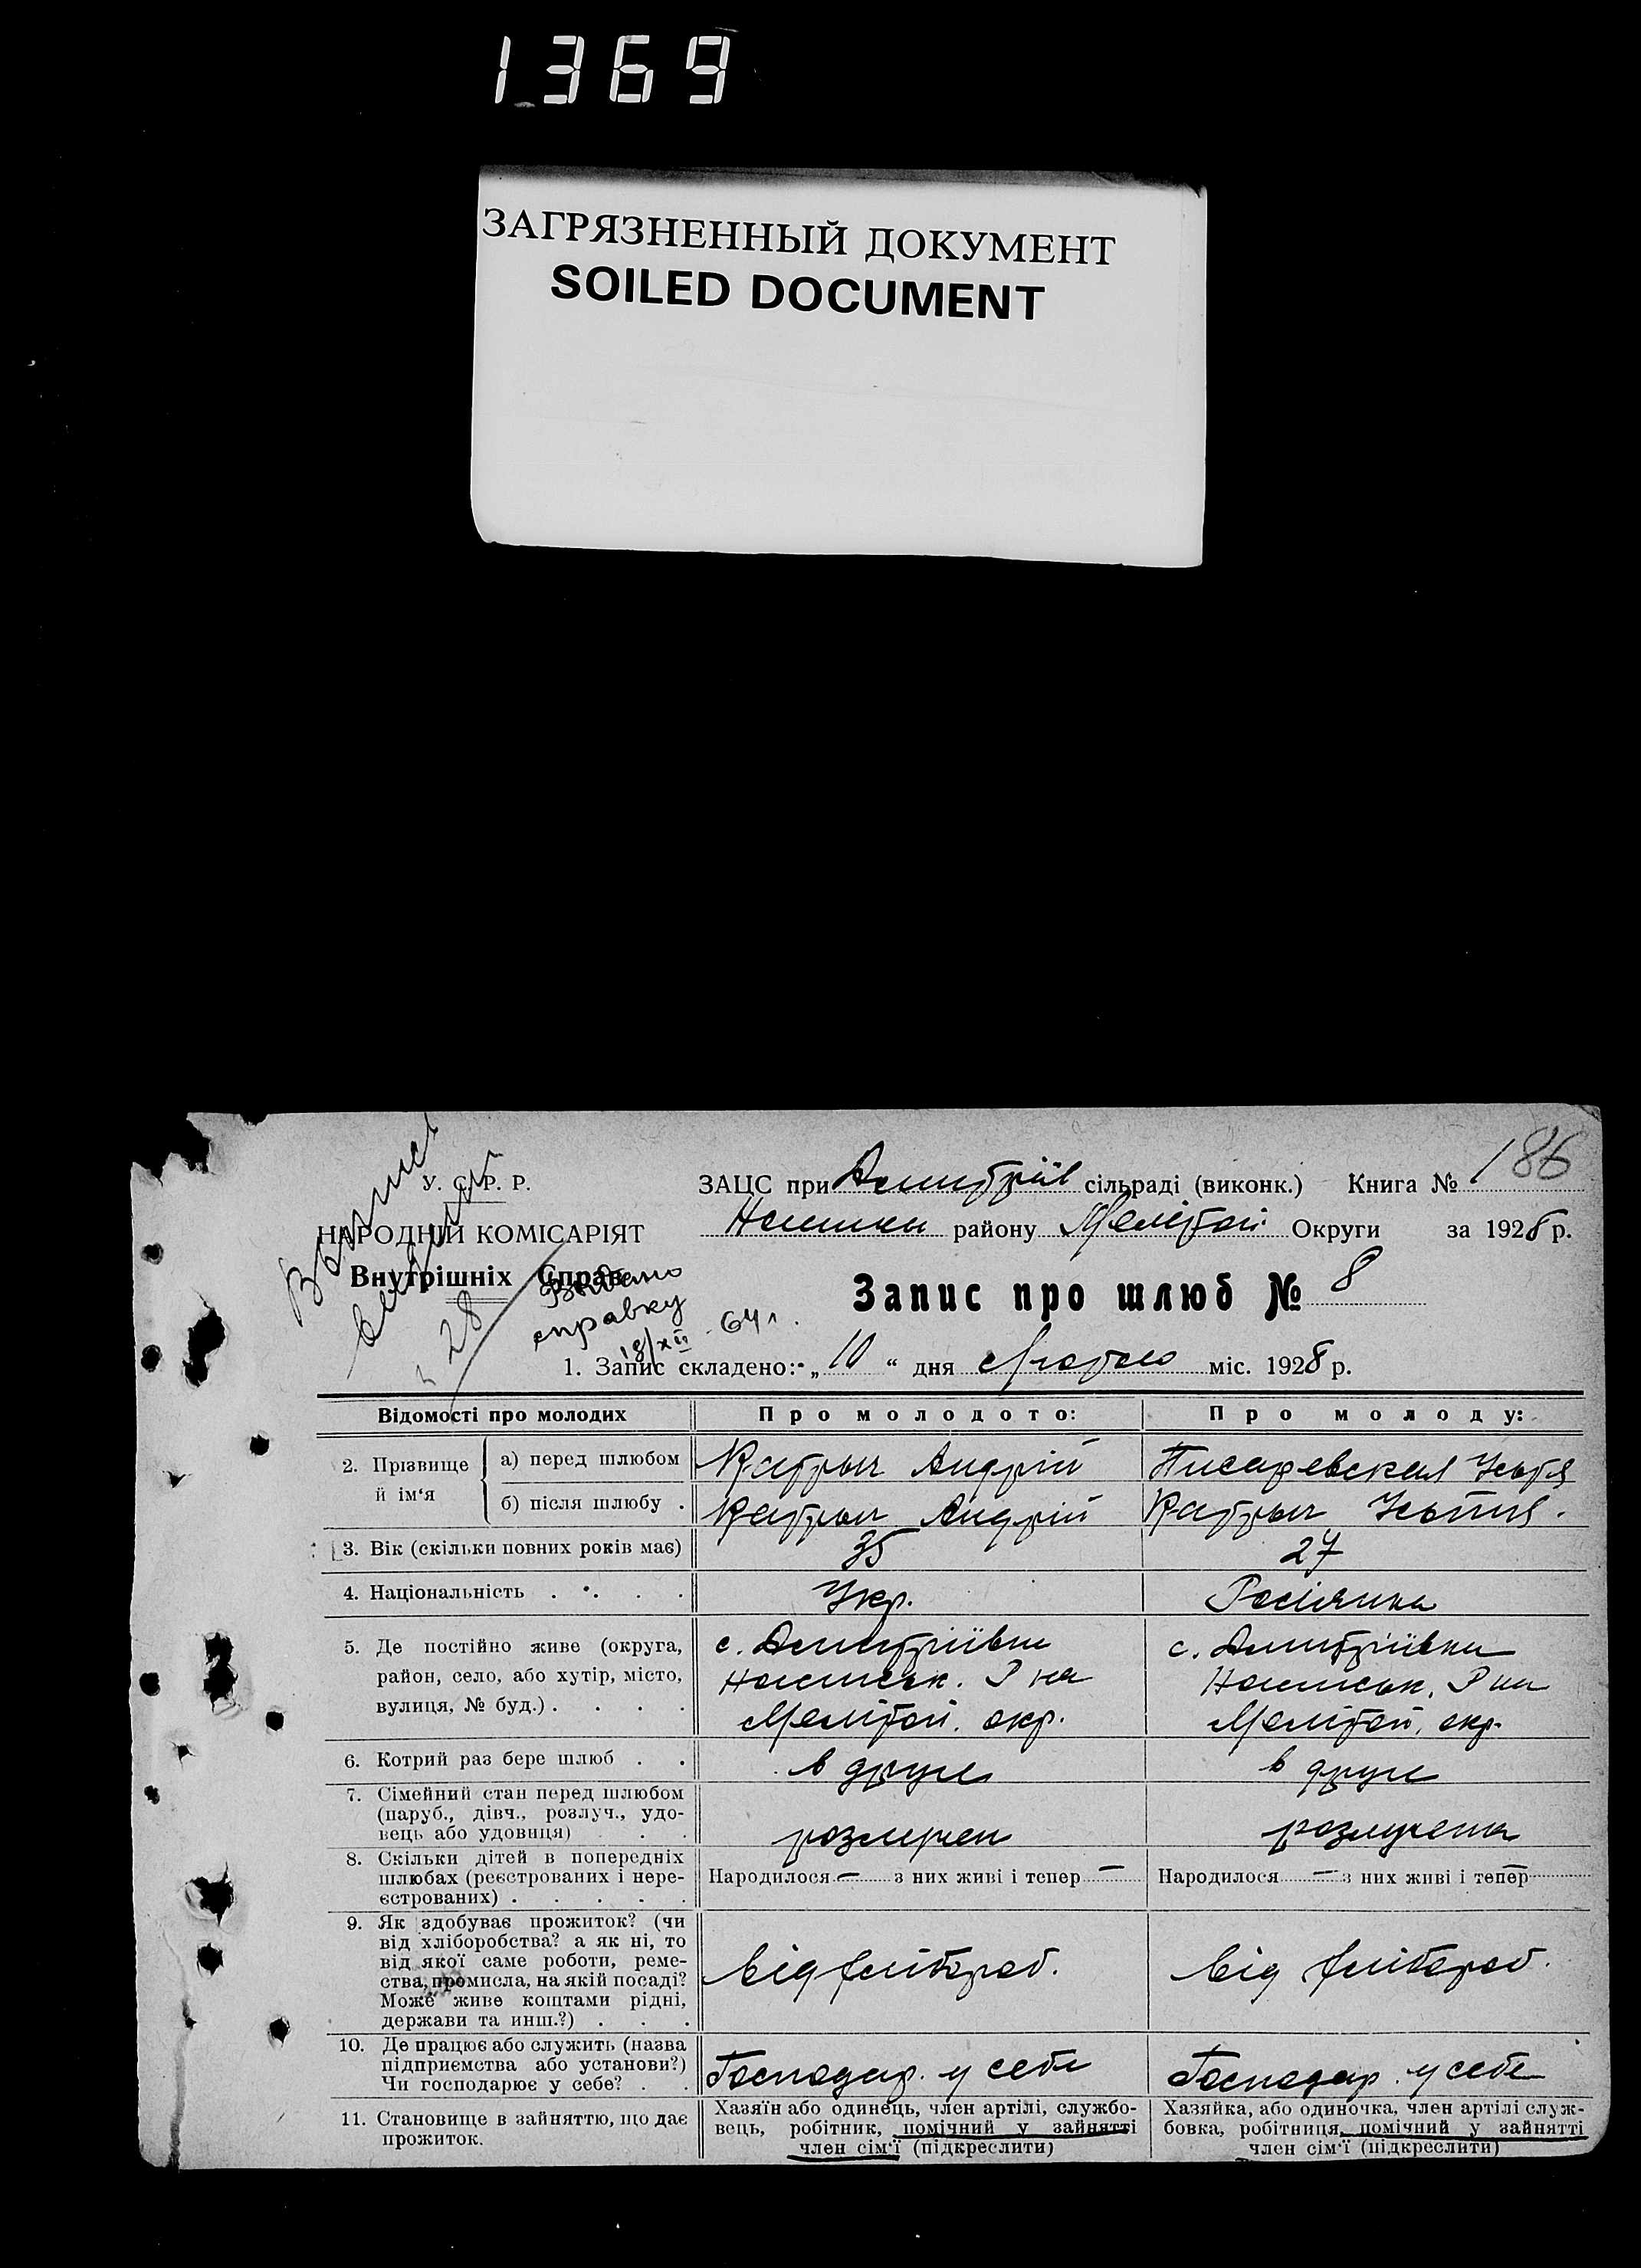 1369
ЗАГРЯЗНЕННЫЙ ДОКУМЕНТ
SOILED DOCUMENT
186
У. С. Р. Р.
НАРОДНІЙ КОМІСАРІЯТ
Внутрішніх Справ
Видано
справку
18/XII 64 г.
28
ЗАЦС при Дмитріїв сільраді (виконк.) Книга №
району Мелітоп. Округи за 1928 р.
Запис про шлюб № 8
1. Запис складено: „10“ дня Лютого міс. 1928 р.
Відомості про молодих
Про молодото:
Про молоду:
2. Прізвище й ім‘я
а) перед шлюбом
Катрыч Андрій
Писаревская
б) після шлюбу .
Катрыч Андрій
Катрыч
3. Вік (скільки повних років має)
35
27
4. Національність . . . .
Укр.
Росіянка
5. Де постійно живе (округа,
район, село, або хутір, місто,
вулиця, № буд.) . . . .
с. Дмитріївки
Р на
Мелітоп. окр.
с. Дмитріївки
Р на
Мелітоп. окр.
6. Котрий раз бере шлюб . .
в друге
в друге
7. Сімейний стан перед шлюбом
(паруб., дівч., розлуч., удо-
вець або удовиця) . .
розлучен
розлучена
8. Скільки дітей в попередніх
шлюбах (реєстрованих і нере-
єстрованих) . . . . .
Народилося — з них живі і тепер —
Народилося — з них живі і тепер —
9. Як здобуває прожиток? (чи
від хліборобства? а як ні, то
від якої саме роботи, реме-
ства, промисла, на якій посаді?
Може живе коштами рідні,
держави та инш.?) . . .
від хлібороб.
від хлібороб.
10. Де працює або служить (назва
підприємства або установи?)
Чи господарює у себе? . .
Господар. у себе
Господар. у себе
11. Становище в зайняттю, що дає
прожиток.
Хазяїн або одинець, член артілі, службо-
вець, робітник, помічний у зайнятті
член сім‘ї (підкреслити)
Хазяйка, або одиночка, член артілі служ-
бовка, робітниця, помічний у зайнятті
член сім‘ї (підкреслити)